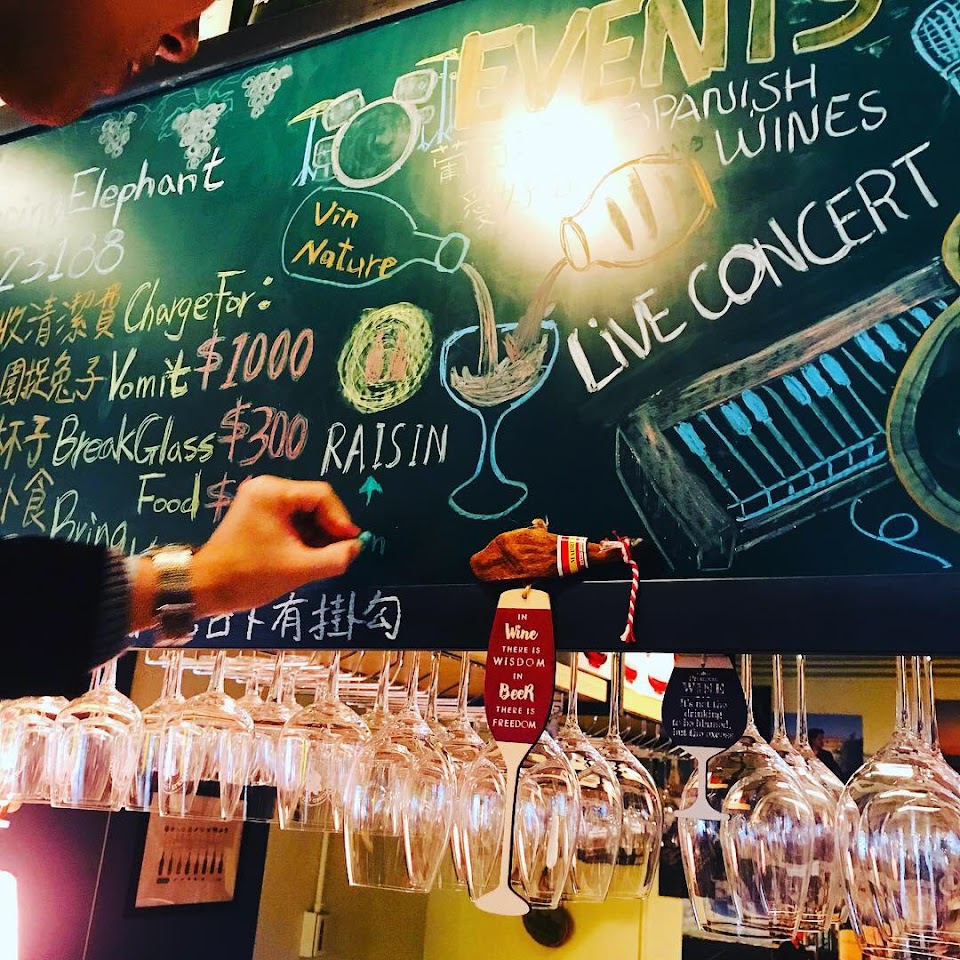 EVENTS
SPANISH
WINES
LIVE CONCERT
Elephant
23188
收清潔費 Charge For:
圍捉兔子 Vomit $1000
杯子 Break Glass $300
外食 Bring Food
Vin
Nature
RAISIN
有掛勾
IN
Wine
THERE IS
WISDOM
IN
BEER
THERE IS
FREEDOM
WINE
It's not the
drinking
to be blamed,
but the excess